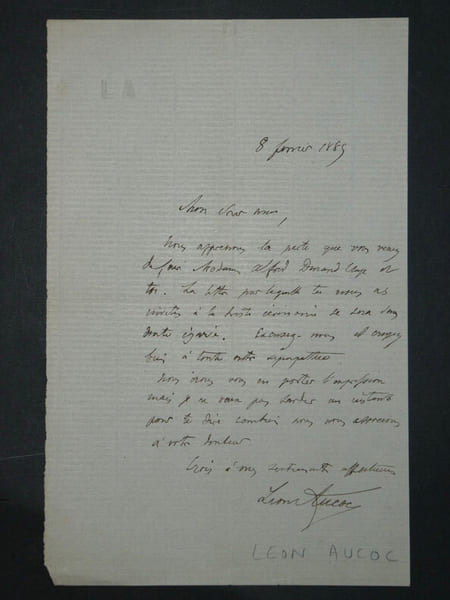 LA
8 février 1889
Mon cher ami,
Nous apprenons la perte que vous venez
de faire Madame Alfred Durand Claye et
toi. La lettre par laquelle tu nous as
invités à la triste cérémonie se sera sans
doute égarée. Excusez-nous et croyez
bien à toute notre sympathie
Nous irons vous en porter l'expression
mais je ne veux pas tarder un instant
pour te dire combien nous nous associons
à votre douleur
Crois à mes sentiments affectueux
Léon Aucoc
LEON AUCOC